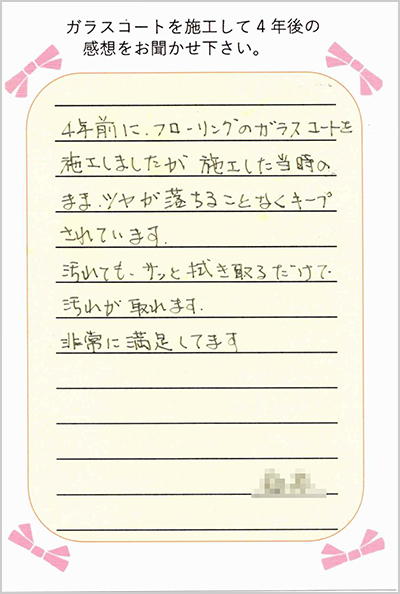 ガラスコートを施工して4年後の
感想をお聞かせ下さい。
4年前に、フローリングのガラスコートを
施工しましたが 施工した当時の
まま、ツヤが落ちることなくキープ
されています.
汚れても、サッと拭き取るだけで
汚れが取れます.
非常に満足してます